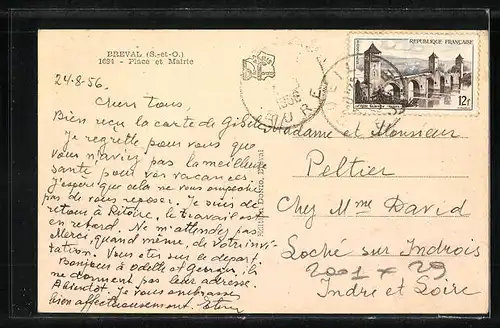 BREVAL (S.-et-O.)
1694 - Place et Mairie
RÉPUBLIQUE FRANÇAISE
12f
24-8-56.
Chers tous,
Bien reçu la carte de
Je regrette pour vous que
vous n'ayiez pas la meilleure
santé pour vos vacances.
J'espère que cela ne vous empêche
pas de vous reposer. Je suis de
retour à le travail est
en retard. Ne m'attendez pas
Merci, quand même, de votre invi-
tation. Vous êtes sur le départ.
Bonjour à Odette et Georges, ils
ne donnent pas leur adresse.
A bientôt. Je vous embrasse
bien affectueusement.
Madame et Monsieur
Peltier
Chez Mme David
Loché sur Indrois
2001 x 29
Indre et Loire